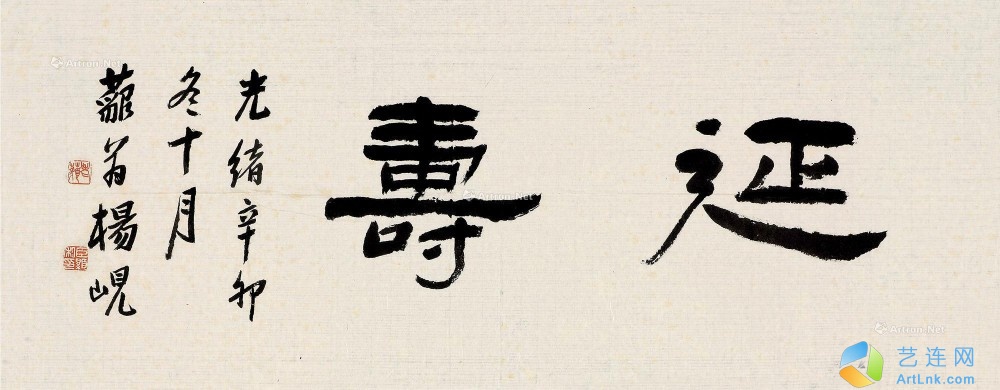 延壽
光緒辛卯
冬十月
藐翁楊峴
艺连网
ArtLnk.com
Artron.Net
Artron.Net